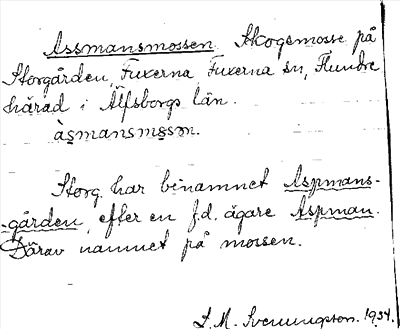 Assmansmossen Skogsmosse på
Storgården, Fuxerna Fuxerna sn, Flundre
härad i Älfsborgs län.
àsmansmåsən.
Storg. har binamnet Aspmans-
-gården, efter en f.d. ägare Aspman.
Därav namnet på mossen.
L. M. Svenungson. 1934.